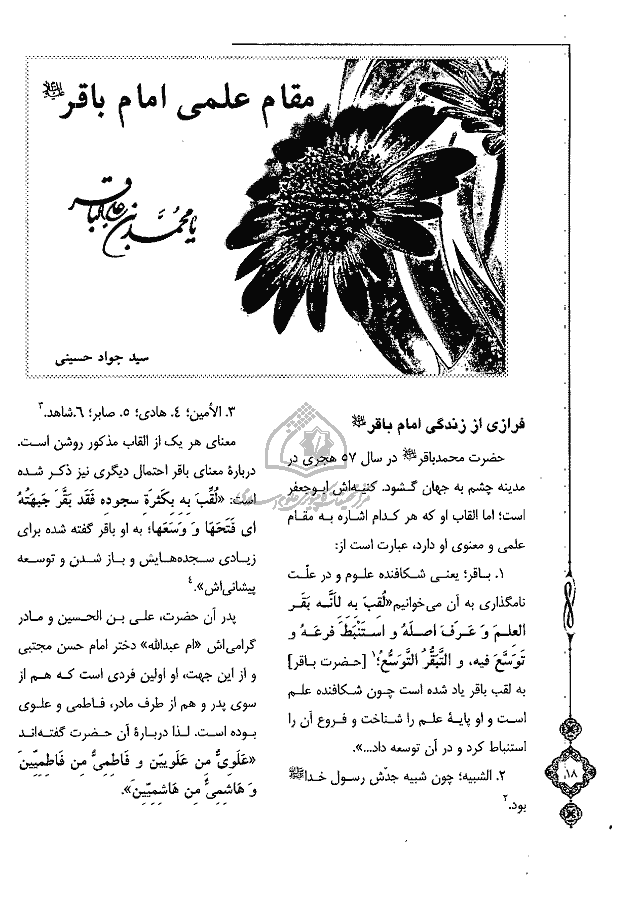 مقام علمی امام باقر علیه‌السلام
یا محمد بن علی الباقر
سید جواد حسینی
فرازی از زندگی امام باقر علیه‌السلام
حضرت محمدباقر علیه‌السلام در سال ۵۷ هجری در
مدینه چشم به جهان گشود. کنیه‌اش ابوجعفر
است؛ اما القاب او که هر کدام اشاره به مقام
علمی و معنوی او دارد، عبارت است از:
۱. باقر؛ یعنی شکافنده علوم و در علّت
نامگذاری به آن می‌خوانیم «لُقِّبَ بِهِ لِأَنَّه بَقَرَ
العلمَ وَ عَرَفَ اصلَهُ و اسْتَنْبَطَ فرعَهُ و
تَوَسَّعَ فیه، و التَّبَقُّرُ التَّوَسُّعُ؛۱ [حضرت باقر]
به لقب باقر یاد شده است چون شکافنده علم
است و او پایهٔ علم را شناخت و فروع آن را
استنباط کرد و در آن توسعه داد...».
۲. الشبیه؛ چون شبیه جدّش رسول خدا صلی‌الله‌علیه‌وآله
بود.۲
۳. الأمین؛ ۴. هادی؛ ۵. صابر؛ ۶.شاهد.۳
معنای هر یک از القاب مذکور روشن است.
دربارهٔ معنای باقر احتمال دیگری نیز ذکر شده
است: «لُقِّبَ بِهِ بِکَثْرَةِ سجودِه فَقَد بَقَّرَ جَبهَتَهُ
ای فَتَحَهَا وَ وَسَعَها؛ به او باقر گفته شده برای
زیادی سجده‌هایش و باز شدن و توسعه
پیشانی‌اش».۴
پدر آن حضرت، علی بن الحسین و مادر
گرامی‌اش «ام عبدالله» دختر امام حسن مجتبی
و از این جهت، او اولین فردی است که هم از
سوی پدر و هم از طرف مادر، فاطمی و علوی
بوده است. لذا دربارهٔ آن حضرت گفته‌اند
«عَلَوِیٌّ مِن عَلَوِیین و فَاطمِیٌّ مِن فَاطِمِیِّینَ
وَ هَاشِمِیٌّ مِن هَاشِمِیِّینَ».
۱۸